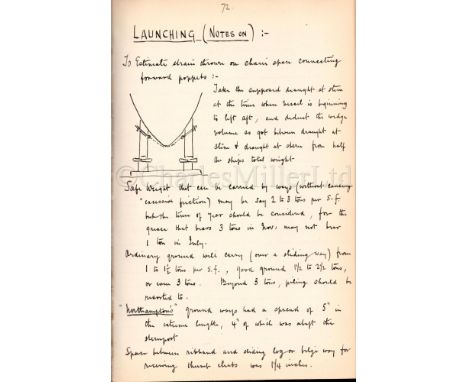 72.
LAUNCHING (NOTES ON) :-
To Estimate strain thrown on chain span connecting
forward poppets :-
Take the supposed draught at stem
at the time when vessel is beginning
to lift aft, and deduct the wedge
volume as got between draught at
stem & draught at stern from half
the ships total weight
©Charles Miller Ltd
Safe Weight that can be carried by ways (without causing
excessive friction) may be say 2 to 3 tons per s.f.
but the time of year should be considered, for the
grease that bears 3 tons in Nov. may not bear
1 ton in July.
Ordinary ground will carry (over a sliding way) from
1 to 1½ tons per s.f., good ground 1½ to 2½ tons,
or even 3 tons. Beyond 3 tons, piling should be
resorted to.
"Northampton's" ground ways had a spread of 5" in
the extreme length, 4" of which was abaft the
sternpost
Space between ribband and sliding log or bilge way for
receiving thrust cleats was 1¼ inches.